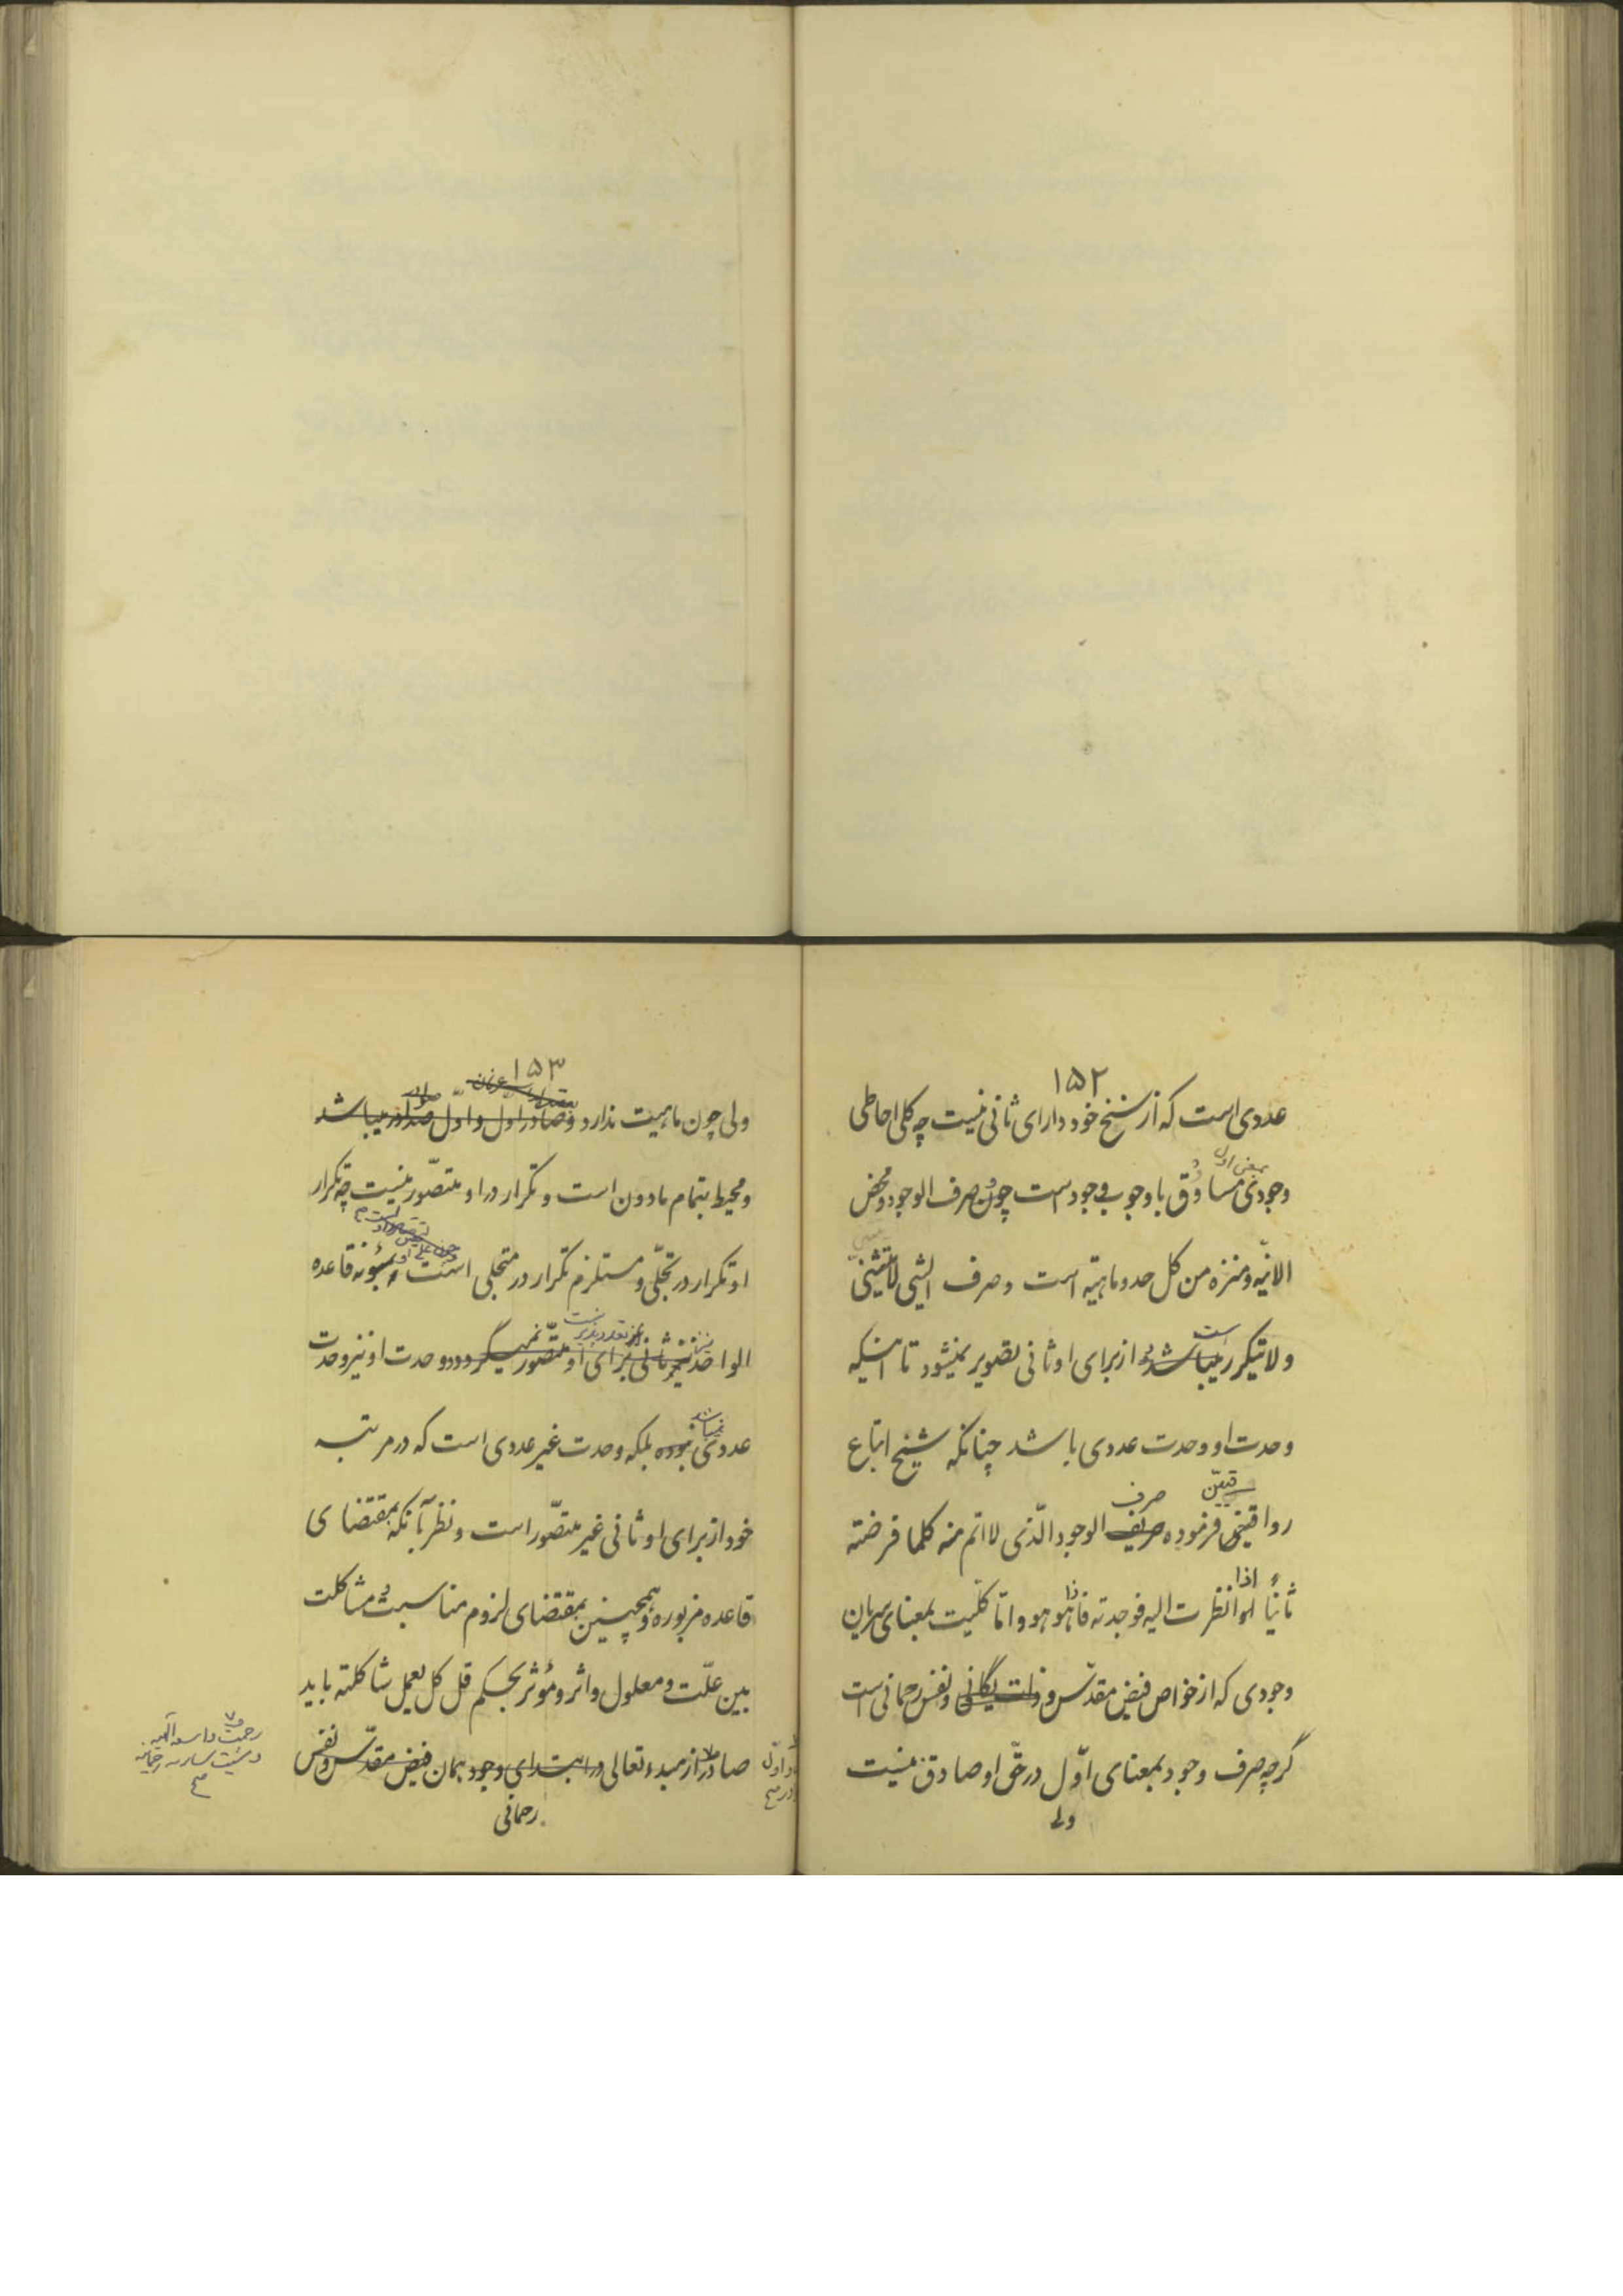 ۱۵۲
عددی است که از سنخ خود دارای ثانی نیست چه کلی احاطی
بمعنی اول
وجودی مساوق با وجوب وجود است چون صرف الوجود و محض
الانیّه و منزه من کل حد و ماهیّته است و صرف الشیی لایتثنی
است
ولایتکرر میباشد از برای او ثانی تصویر نمیشود تا اینکه
وحدت او وحدت عددی باشد چنانکه شیخ اتباع
صرف
رواقیین فرموده صرف الوجود الّذی لا اتم منه کلما فرضته
اذا
ثانیاً لو انظرت الیه فوجدته فاذا هو هو و امّا کلّیت بمعنای سریان
وجودی که از خواص فیض مقدّس و ذات یگانی و نفس رحمانی است
گرچه صرف وجود بمعنای اوّل در حقّ او صادق نیست
ولی
۱۵۳
ولی چون ماهیت ندارد و صادر اول و اوّل صادر میباشد
و محیط بتمام مادون است و تکرار در او متصّور نیست چه تکرار
او تکرار در تجلّی و مستلزم تکرار در متجلی است قاعده
الواحد ثانی برای او متصّور نمیگردد و وحدت او نیز وحدت
نمیباشد
عددی نبوده بلکه وحدت غیر عددی است که در مرتبه
خود از برای او ثانی غیر متصّور است و نظر بآنکه بمقتضای
قاعده مزبوره و همچنین بمقتضای لزوم مناسبت و مشاکلت
بین علّت و معلول و اثر و مؤثر بحکم قل کل یعمل شاکلته باید
صادر از مبدء تعالی در ابتدای وجود همان فیض مقدّس و نفس
رحمانی